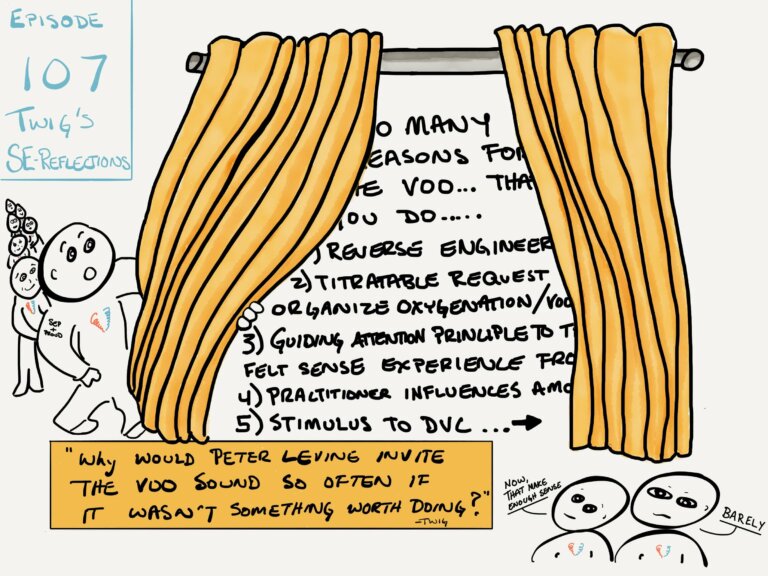 EPISODE
107
TWIG'S
SE-REFLECTIONS
O MANY
EASONS FOR
HE VOO... THA
YOU DO.....
1) REVERSE ENGINEER
2) TITRATABLE REQUEST
ORGANIZE OXYGENATION/VOO
3) GUIDING ATTENTION PRINCIPLE TO T
FELT SENSE EXPERIENCE FRO
4) PRACTITIONER INFLUENCES AMO
5) STIMULUS TO DVC ...
SEP
+
PROUD
"WHY WOULD PETER LEVINE INVITE
THE VOO SOUND SO OFTEN IF
IT WASN'T SOMETHING WORTH DOING?"
-TWIG
NOW,
THAT MAKE
ENOUGH SENSE
BARELY